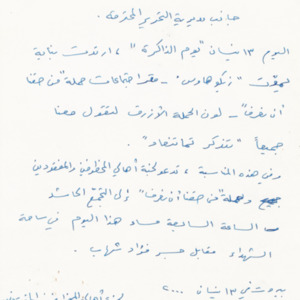 جانب مديرية التحرير المحترمة .
اليوم ١٣ نيسان "يوم الذاكرة" ، ارتدت بناية
بيروت "زيكو هاوس" - مقر اجتماعات حملة "من حقنا
أن نعرف" - لون الحملة الأزرق لتقول معنا
جميعاً "تنذكر تما تنعاد" .
وفي هذه المناسبة ، تدعو لجنة أهالي المخطوفين والمفقودين
وحملة "من حقنا أن نعرف" إلى التجمّع الحاشد
الساعة السابعة مساء هذا اليوم في ساحة
الشهداء مقابل جسر فؤاد شهاب .
بيروت في ١٣ نيسان ٢٠٠٠